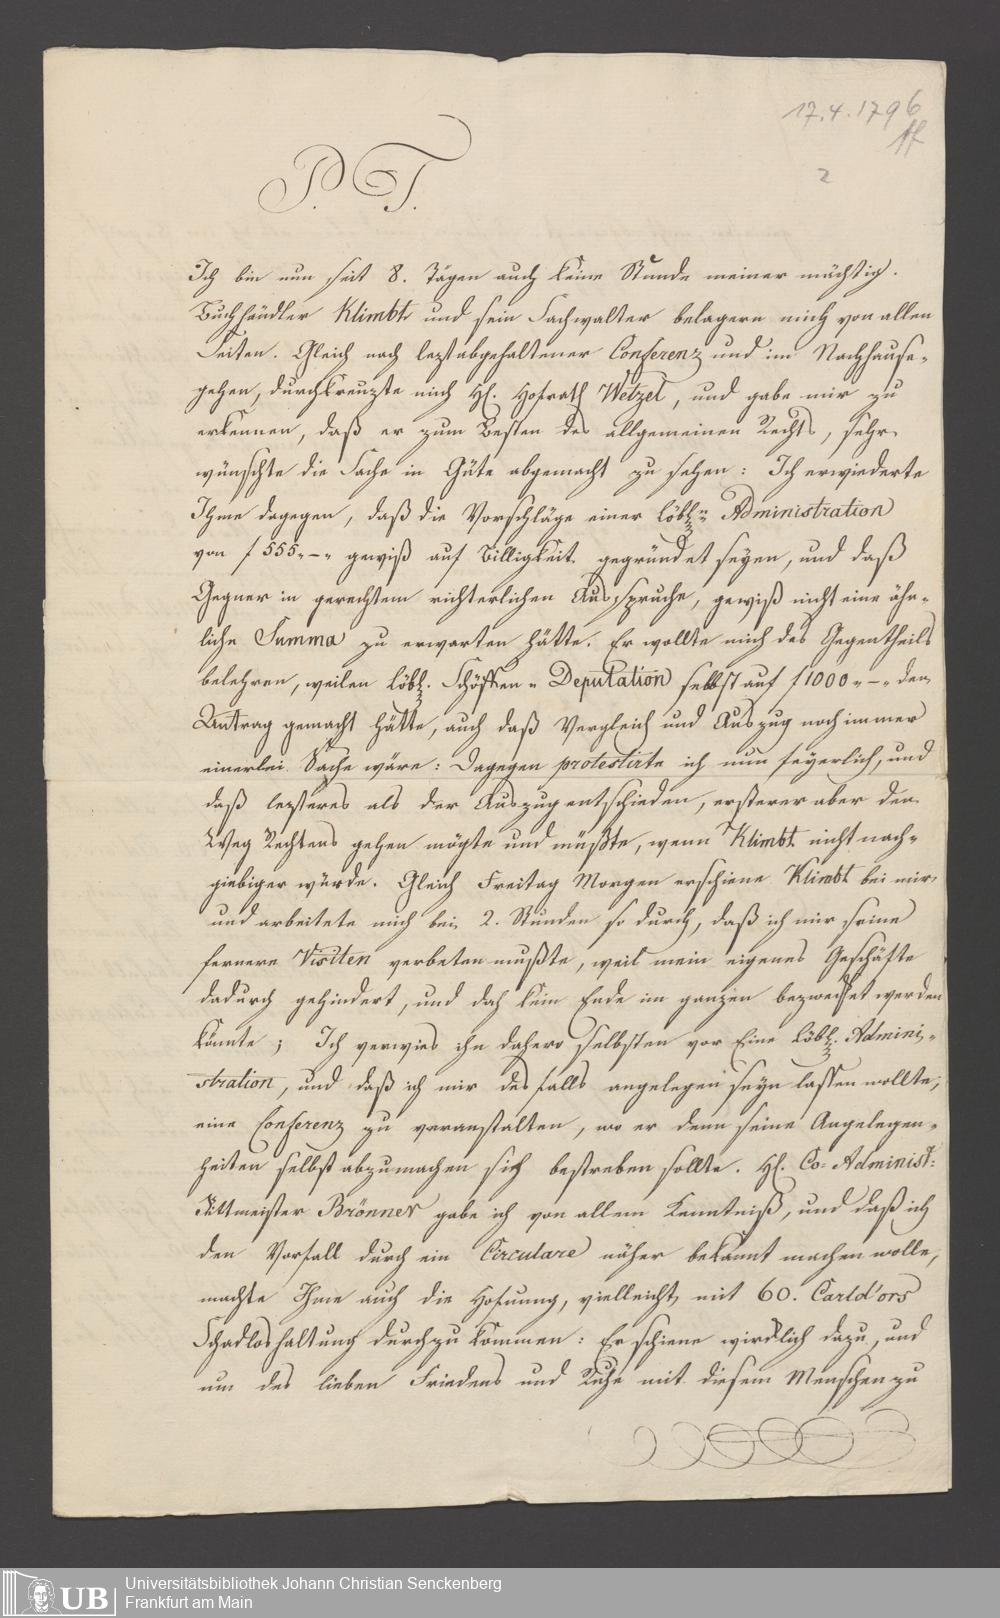 17.4.1796
2
P. T.
Ich bin nun seit 8. Tägen auch keine Stunde meiner mächtig.
Buchhändler Klimbt und sein Sachwalter belagern mich von allen
Seiten. Gleich nach leztabgehaltener Conferenz und im Nachhause-
gehen, durchkreuzte mich H. Hofrath Wetzel, und gabe mir zu
erkennen, daß er zum Besten des allgemeinen Rechts, sehr
wünschte die Sache in Güte abgemacht zu sehen: Ich erwiederte
Ihme dagegen, daß die Vorschläge einer löbl. Administration
von f 555.-. gewiß auf Billigkeit gegründet seyen, und daß
Gegner in gerechtem richterlichen Ausspruche, gewiß nicht eine ähn-
liche Summa zu erwarten hätte. Er wollte mich des Gegentheils
belehren, weilen löbl. Schöffen-Deputation selbst auf f 1000.-. den
Antrag gemacht hätte, auch daß Vergleich und Auszug noch immer
einerlei Sache wäre: Dagegen protestirte ich nun feyerlich, und
daß lezteres als der Auszug entschieden, ersterer aber den
Weg Rechtens gehen mögte und müßte, wenn Klimbt nicht nach-
giebiger würde. Gleich Freitag Morgen erschiene Klimbt bei mir
und arbeitete mich bei 2. Stunden so durch, daß ich mir seine
fernere Visiten verbeten mußte, weil mein eigenes Geschäfte
dadurch gehindert, und doch kein Ende im ganzen bezwecket werden
konnte; Ich verwies ihn dahero selbsten vor Eine löbl. Admini-
stration, und daß ich mir des falls angelegen seyn lassen wollte,
eine Conferenz zu veranstalten, wo er denn seine Angelegen-
heiten selbst abzumachen sich bestreben sollte. H. Co-Administ:
Rittmeister Brönner gabe ich von allem Kenntniß, und daß ich
den Vorfall durch ein Circulare näher bekannt machen wolle,
machte Ihme auch die Hofnung, vielleicht mit 60. Carld'ors
Schadloshaltung durchzukommen: Er schiene wirklich dazu, und
um des lieben Friedens und Ruhe mit diesem Menschen zu
UB
Universitätsbibliothek Johann Christian Senckenberg
Frankfurt am Main